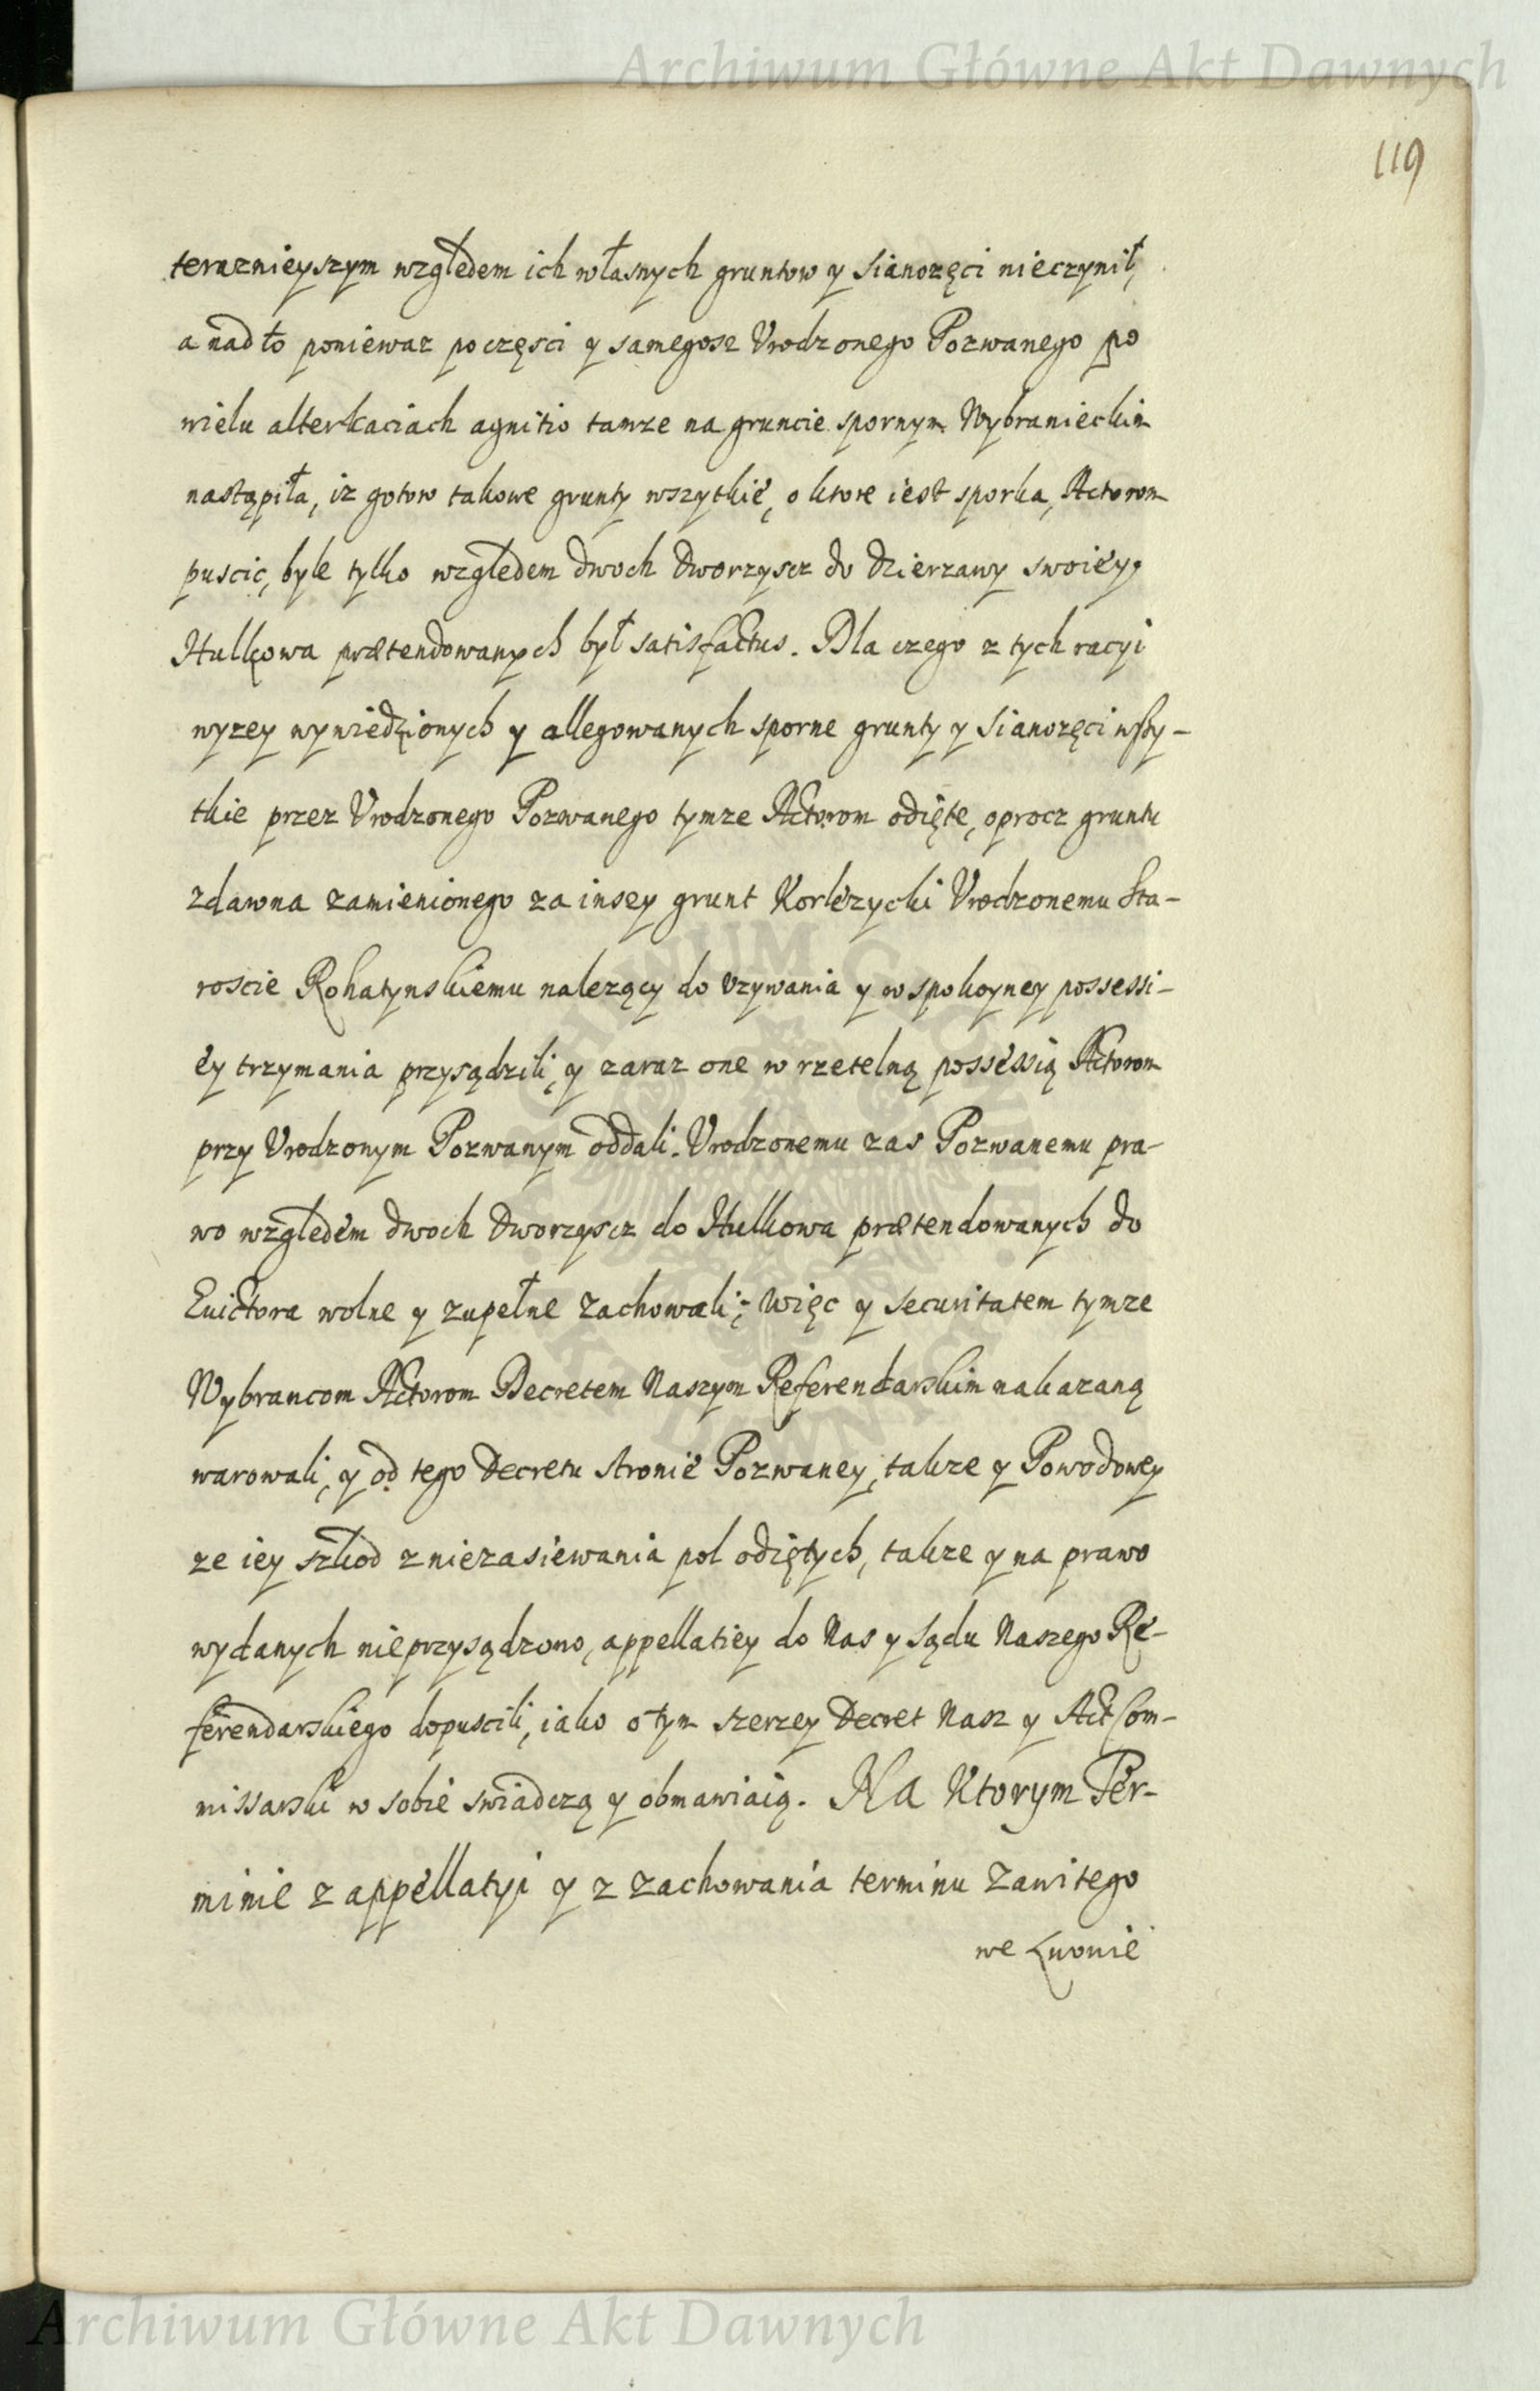 Archiwum Główne Akt Dawnych
119
teraznieyszym względem ich własnych gruntow y sianozęci nieczynił,
a nadto poniewaz poczęsci y samegosz Vrodzonego Pozwanego po
wielu alterkaciach agnitio tamze na gruncie spornym Wybranieckim
nastąpiła, iz gotow takowe grunty wszytkie, o ktore iest sporka, Actorom
puscic, byle tylko względem dwoch dworzyscz do dzierzawy swoiey
Hulkowa prætendowanych był satisfactus. Dla czego z tych racyi
wyzey wywiedzionych y allegowanych sporne grunty y sianozęci wszy-
tkie przez Vrodzonego Pozwanego tymze Actorom odięte, oprocz gruntu
zdawna zamienionego za inszy grunt Vrodzonemu Sta-
roscie Rohatynskiemu nalezący do vzywania y w spokoyney possessi-
ey trzymania przysądzili, y zaraz one w rzetelną possessią Actorom
przy Vrodzonym Pozwanym oddali. Vrodzonemu zas Pozwanemu pra-
wo względem dwoch dworzyscz do Hulkowa prætendowanych do
Euictora wolne y zupełne zachowali; Więc y securitatem tymze
Wybrancom Actorom Decretem Naszym Referendarskim nakazaną
warowali, y od tego Decretu stronie Pozwaney, takze y Powodowey
ze iey szkod z niezasiewania pol odiętych, takze y na prawo
wydanych nieprzysądzono, appellatiey do Nas y Sądu Naszego Re-
ferendarskiego dopuscili, iako o tym szerzey Decret Nasz y Act Com-
missarski w sobie swiadczą y obmawiaią. Na Ktorym Ter-
minie z appellatyi y z zachowania terminu zawitego
we Lwowie
Archiwum Główne Akt Dawnych